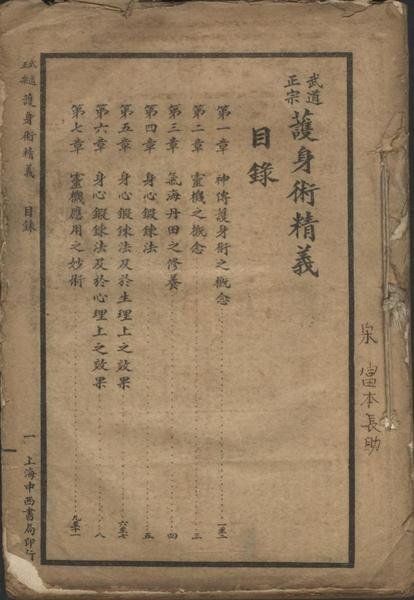 武道
正宗
護身術精義
目錄
第一章 神傳護身術之概念 一至二
第二章 靈機之概念 三
第三章 氣海丹田之修養 四
第四章 身心鍛鍊法 五
第五章 身心鍛鍊法及於生理上之效果 六至七
第六章 身心鍛鍊法及於心理上之效果 八
第七章 靈機應用之妙術 九至十一
武道
正宗
護身術精義 目錄
一 上海中西書局印行
富本長助